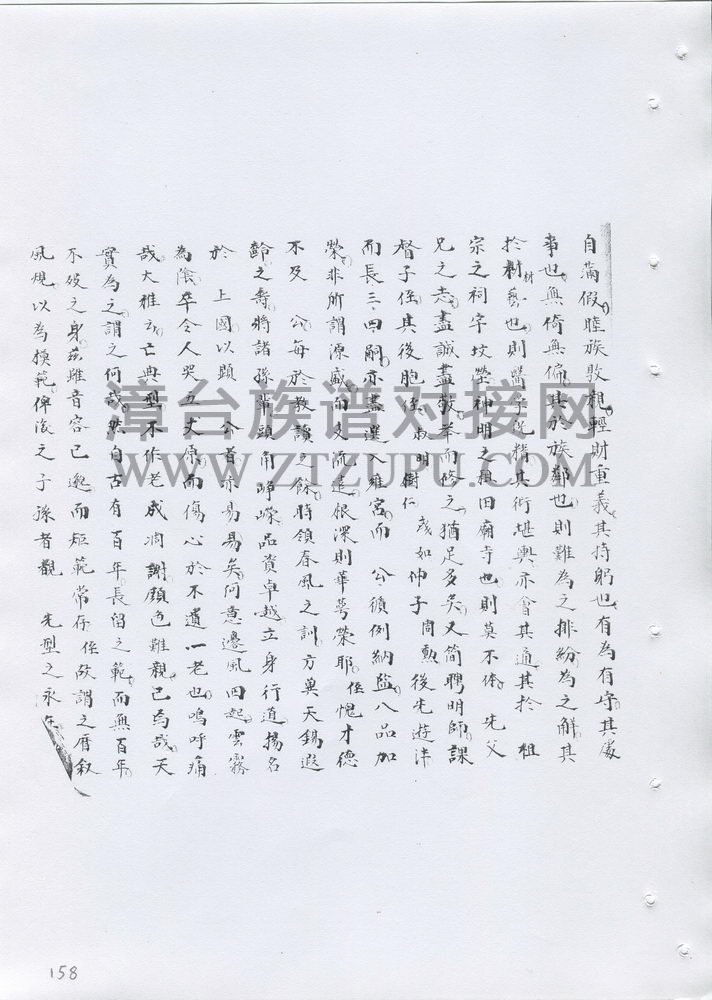 自滿假睦族敦親輕財重義其持躬也有為有守其處
事也無倚無偏其於族鄰也則難為之排紛為之解其
於材藝也則醫學既精其術堪輿亦會其適其於 祖
宗之祠宇坟塋神明之租田廟寺也則莫不体 先父
兄之志盡誠盡敬半而修之猶足多矣又简聘明師課
督子侄其後胞侄 明樹仁 茂如仲子 勲 後先遊泮
而長三四嗣亦盡選入雍宮而 公循例納監八品加
榮非所謂源盛而支流遠根深則華萼榮耶 侄愧才德
不及 公每於教讀之餘時領春風之訓方冀天錫遐
齡之壽將諸孫 頭角崢嶸品資卓越立身行道揚名
於 上國以顯 公者亦易易矣何意邊風四起雲霧
為陰卒令人哭五丈原而傷心於不遺一老也嗚呼痛
哉大雅云亡典型不作老成凋謝顏色難親已焉哉天
實為之謂之何哉然自古有百年長留之範而無百年
不歿之身兹雖音容已邈而矩範常存 侄故謂之厝叙
風規以為模範俾後之子孫者觀 先型之永在
漳台族谱对接网
WWW.ZTZUPU.COM
158